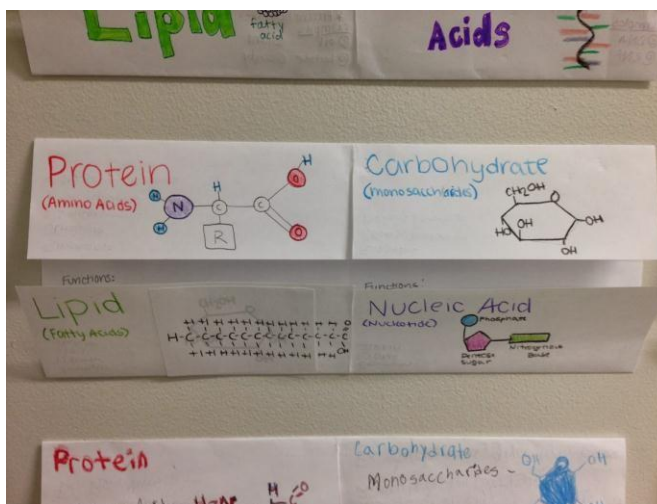 Lipid
fatty
acid
Acids
Protein
(Amino Acids)
H
H
N
H
C
C
R
H
O
O
Carbohydrate
(monosaccharides)
CH2OH
O
HO
OH
OH
OH
Functions:
Functions:
Lipid
(Fatty Acids)
Nucleic Acid
(Nucleotide)
Phosphate
Pentose
Sugar
Nitrogenous
Base
Protein
H
O
C
Carbohydrate
Monosaccharides -
OH
OH